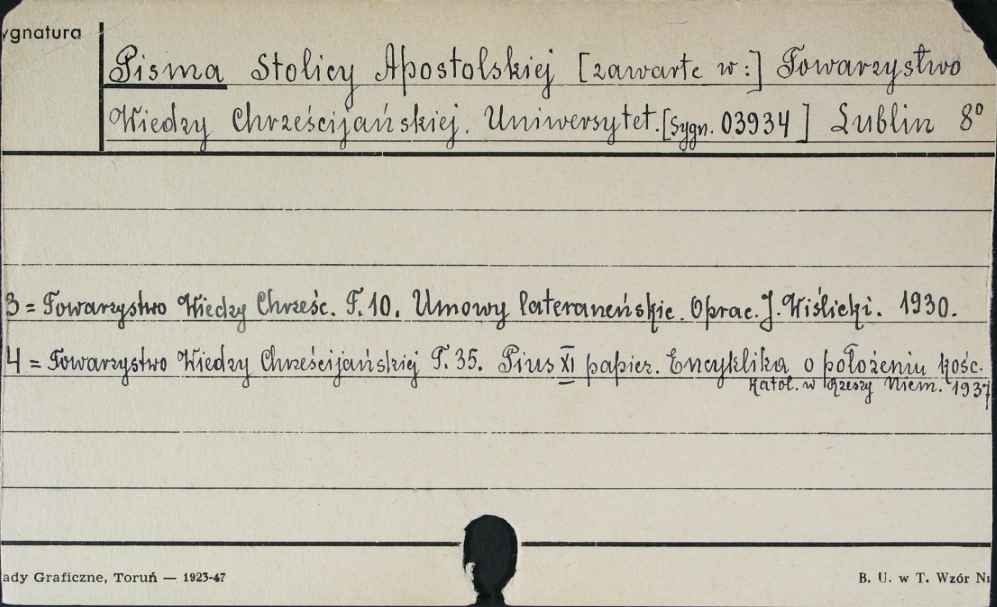 ygnatura
Pisma Stolicy Apostolskiej [zawarte w:] Towarzystwo
Wiedzy Chrześcijańskiej. Uniwersytet. [Sygn. 03934] Lublin 8°
3 = Towarzystwo Wiedzy Chrześc. T. 10. Umowy lateraneńskie. Oprac. J. Wiślicki. 1930.
4 = Towarzystwo Wiedzy Chrześcijańskiej T. 35. Pius XI papież. Encyklika o położeniu kośc.
katol. w Rzeszy Niem. 1937
ady Graficzne, Toruń — 1923-47
B. U. w T. Wzór N